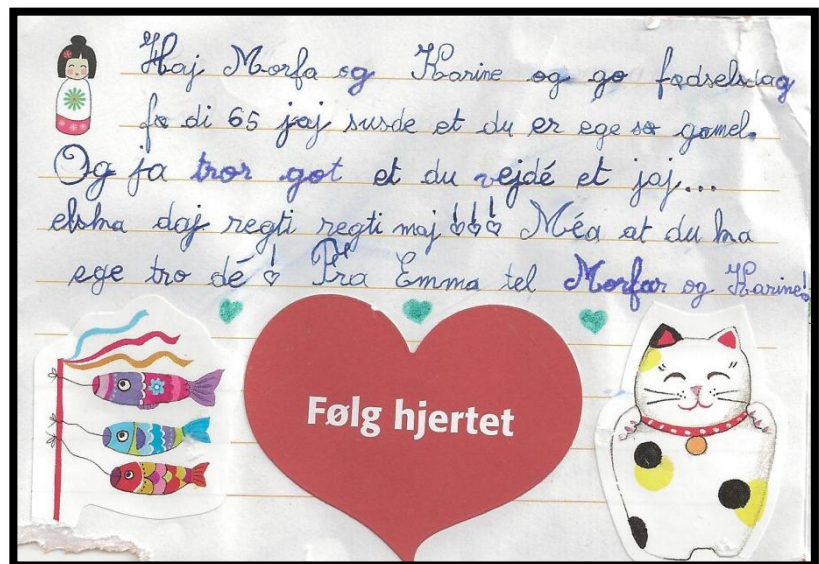 Haj Morfa og Karine og go fødselsdag
fø di 65 jaj susde et du er ege sø gamel.
Og ja tror got et du vejdé et jaj...
elska daj regti regti maj!!! Méa at du ka
ege tro dé! Fra Emma tel Morfar og Karine!
Følg hjertet